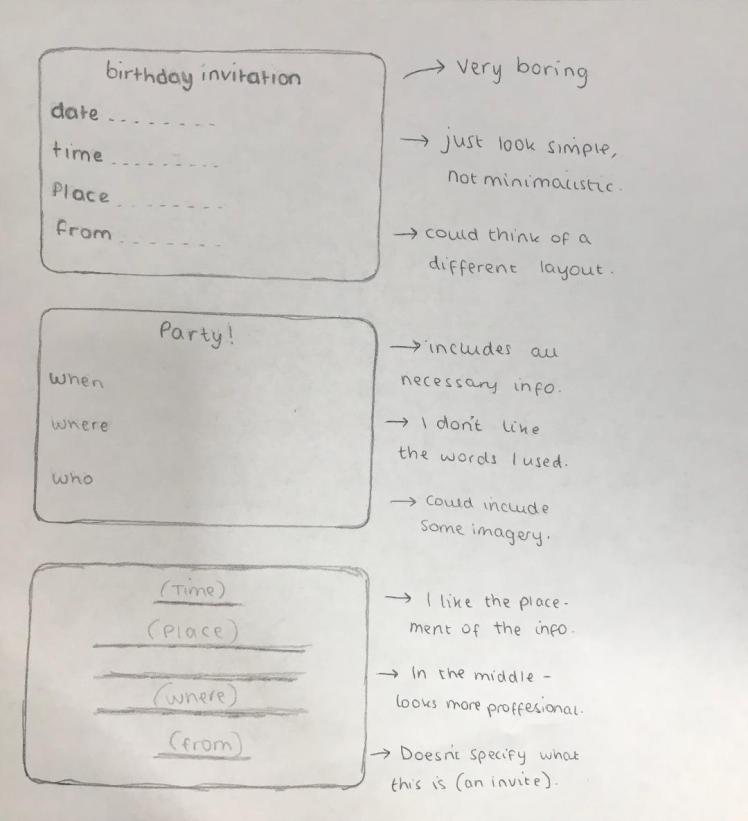 birthday invitation
date ........
time ........
Place ........
from .......
→ Very boring
→ just look simple,
not minimalistic.
→ could think of a
different layout.
Party!
when
where
who
→ includes all
necessary info.
→ I don't like
the words I used.
→ Could include
some imagery.
(Time)
(Place)
(where)
(from)
→ I like the place-
ment of the info.
→ In the middle -
looks more proffesional.
→ Doesn't specify what
this is (an invite).